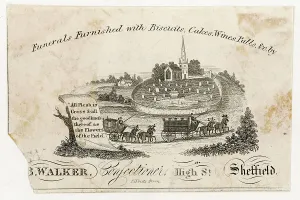 Funerals Furnished with Biscuits, Cakes, Wines, Palls, &c by
All Flesh is
Grass & all
the goodliness
thereof as
the Flower
of the Field
B. WALKER, Confectioner, High St. Sheffield.